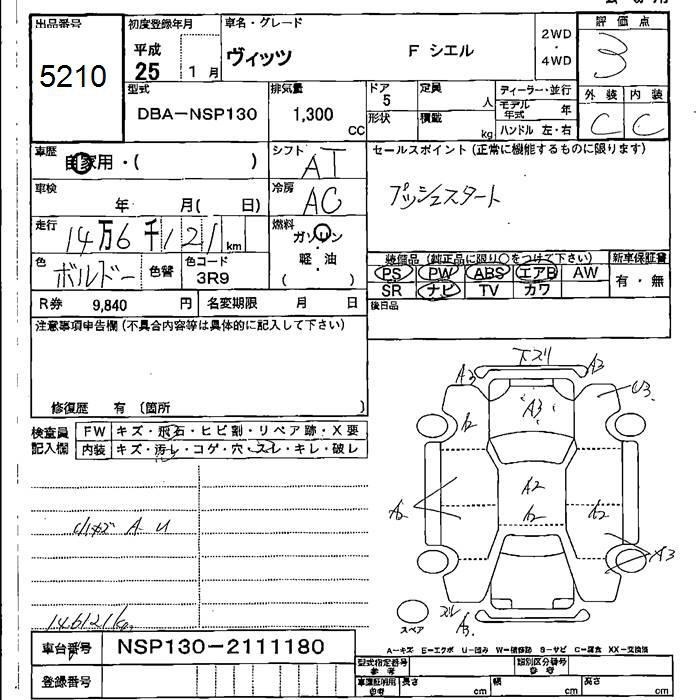 出品番号 初度登録年月 車名・グレード 評価点
5210 平成 25 1月 ヴィッツ F シエル 2WD・4WD 3
型式 排気量 ドア 定員 ディーラー・並行 外装 内装
DBA-NSP130 1,300 CC 5 人 モデル年式 年 C C
形状 積載 kg ハンドル 左・右
車歴 自家用・( ) シフト AT セールスポイント(正常に機能するものに限ります)
車検 年 月( 日) 冷房 AC プッシュスタート
走行 14万6千121km 燃料 ガソリン
軽・油
( )
色 ボルドー 色替 色コード 3R9
装備品(純正品に限り○をつけて下さい) 新車保証書
PS PW ABS エアB AW 有・無
SR ナビ TV カワ
R券 9,840 円 名変期限 月 日 後日品
注意事項申告欄(不具合内容等は具体的に記入して下さい)
修復歴 有 〔箇所 〕
検査員記入欄 FW キズ・飛石・ヒビ割・リペア跡・X要
内装 キズ・汚レ・コゲ・穴・スレ・キレ・破レ
下スリ
A3 A3
A3 U3
A2
A2
A2 A2
A3
スレ
A3
A U
146121km
スペア
A-キズ E-エクボ U-凹み W-補修跡 S-サビ C-腐食 XX-交換済
車台番号 NSP130-2111180
登録番号
型式指定番号 参考 類別区分番号 参考
車庫証明用 参考 長さ cm 幅 cm 高さ cm